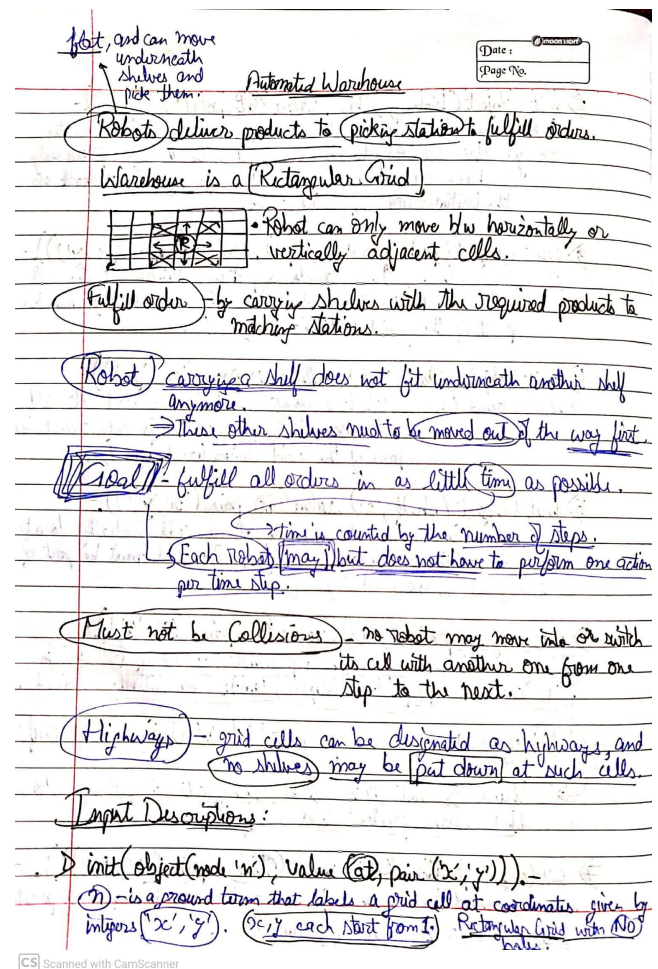 flat, and can move
underneath
shelves and
pick them.
MOONLIGHT
Date :
Page No.
Automated Warehouse
Robots deliver products to picking station to fulfill orders.
Warehouse is a Rectangular Grid
R
• Robot can only move b/w horizontally or
vertically adjacent cells.
Fulfill order - by carrying shelves with the required products to
matching stations.
Robot carrying a shelf does not fit underneath another shelf
anymore.
⇒ These other shelves need to be moved out of the way first.
Goal - fulfill all orders in as little time as possible.
→ time is counted by the number of steps.
→ Each robot may but does not have to perform one action
per time step.
Must not be Collisions - no robot may move into or switch
its cell with another one from one
step to the next.
Highways - grid cells can be designated as highways, and
no shelves may be put down at such cells.
Input Descriptions:
1) init(object(node 'n'), value (at, pair ('x','y'))). -
n - is a ground term that labels a grid cell at coordinates given by
integers 'x','y'. x,y each start from 1. Rectangular Grid with No
holes.
CS Scanned with CamScanner